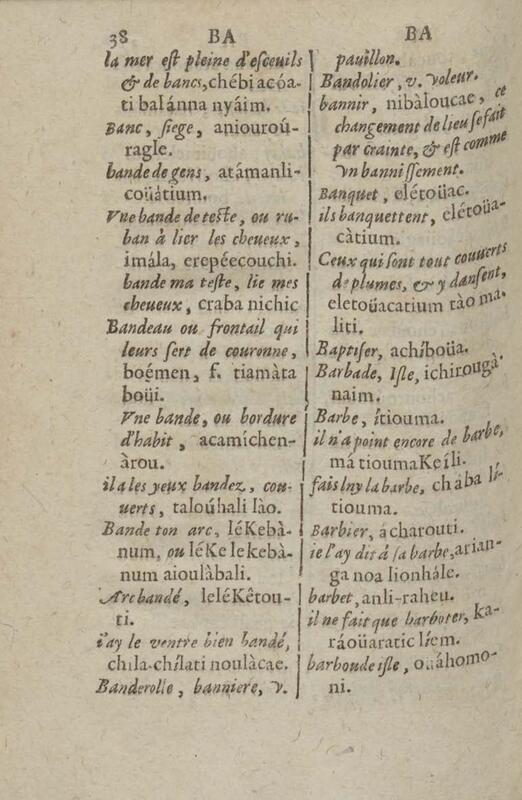 38 BA
la mer est pleine d'esceuils
& de bancs, chébi acóa-
ti balánna nyáim.
Banc, siege, aniouroú-
ragle.
bande de gens, atámanli-
coüátium.
Vne bande de teste, ou ru-
ban à lier les cheueux,
imála, erepéecouchi.
bande ma teste, lie mes
cheueux, craba nichic
Bandeau ou frontail qui
leurs sert de couronne,
boémen, f. tiamàta
boüi.
Vne bande, ou bordure
d'habit, acamíchen-
àrou.
il a les yeux bandez, cou-
uerts, taloúhali lào.
Bande ton arc, léKebà-
num, ou léKe lekebá-
num aioulàbali.
Arc bandé, leléKêtou-
ti.
i'ay le ventre bien bandé,
chila-chílati noulàcae.
Banderolle, banniere, v.
BA
pauillon.
Bandolier, v. voleur.
bannir, nibàloucae, ce
changement de lieu se fait
par crainte, & est comme
vn bannissement.
Banquet, elétoüac.
ils banquettent, elétoüa-
càtium.
Ceux qui sont tout couuerts
de plumes, & y dansent,
eletoüacatium tào ma-
liti.
Baptiser, achíboüa.
Barbade, Isle, ichirougà
naim.
Barbe, ítiouma.
il n'a point encore de barbe,
má tioumaKeíli.
fais luy la barbe, chába lí-
tiouma.
Barbier, ácharouti.
ie l'ay dit à sa barbe, arian-
ga noa lionhále.
barbet, anli-raheu.
il ne fait que barboter, ka-
ráoüaratic líem.
barboude isle, oüáhomo-
ni.